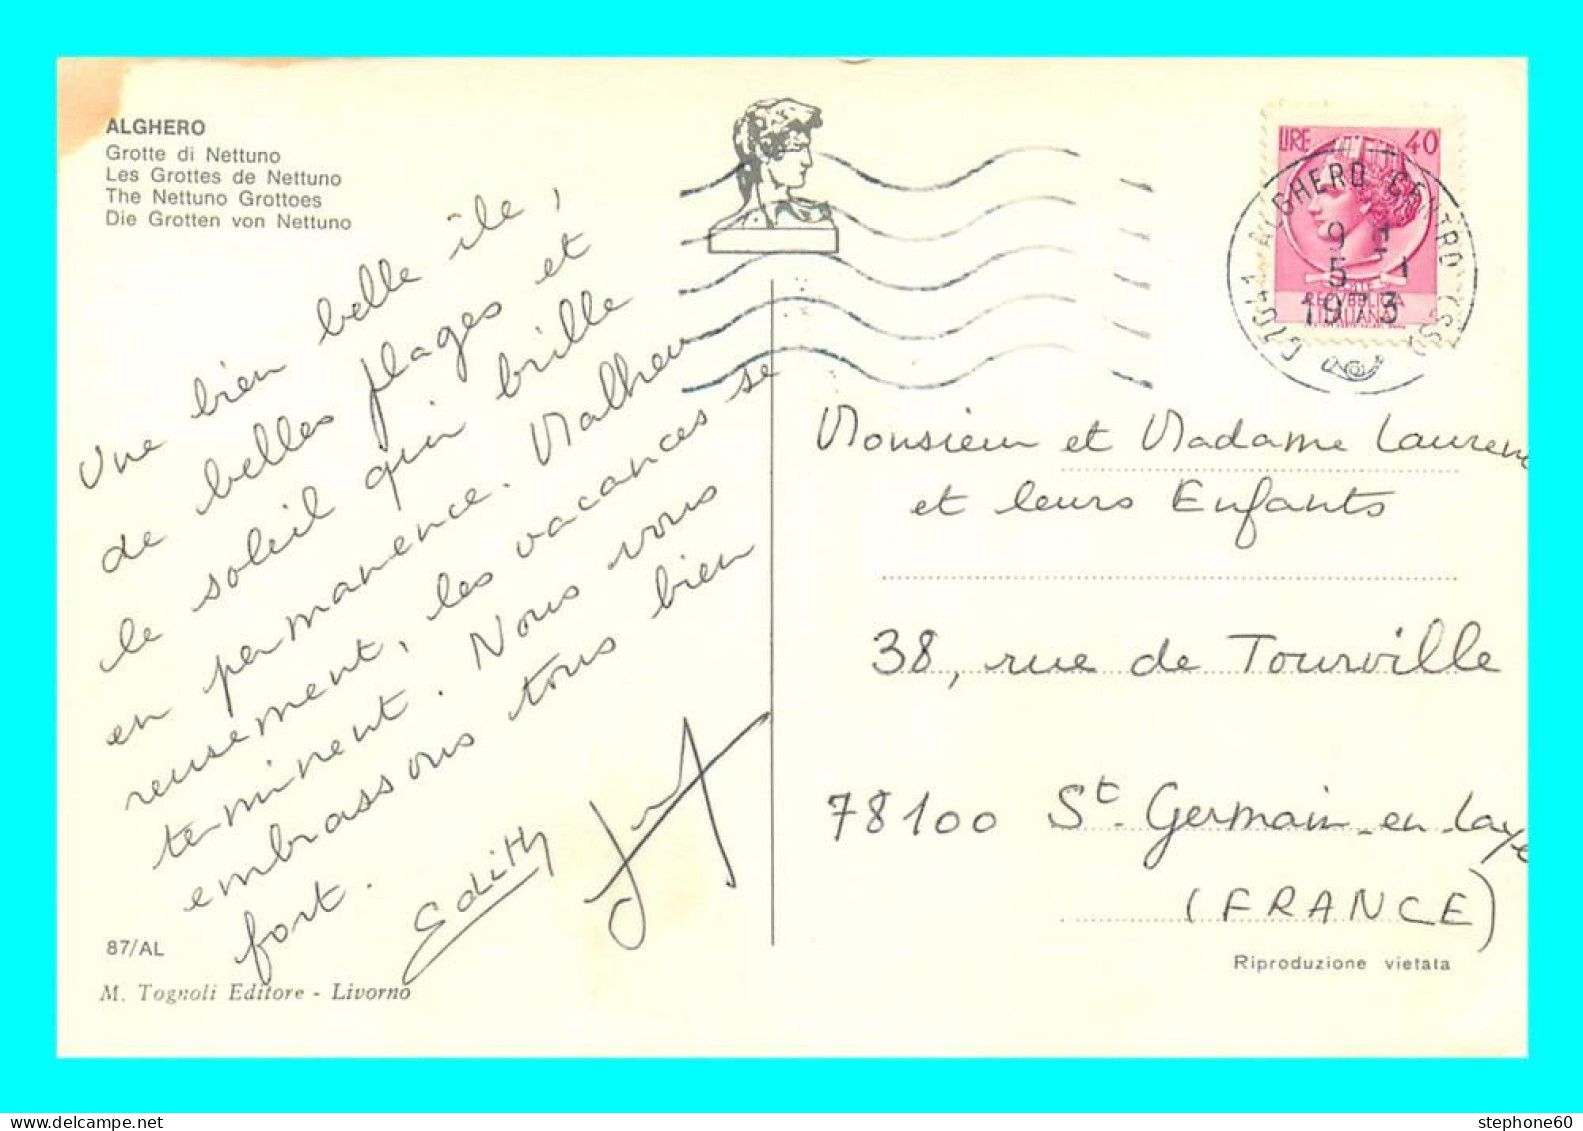 ALGHERO
Grotte di Nettuno
Les Grottes de Nettuno
The Nettuno Grottoes
Die Grotten von Nettuno
Une bien belle île,
de belles plages et
le soleil qui brille
en permanence. Malheu
reusement, les vacances se
terminent. Nous vous
embrassons tous bien
fort.
Edith
87/AL
M. Tognoli Editore - Livorno
LIRE 40
REPVBBLICA
ITALIANA
ALGHERO CENTRO (SS)
07041
9
5 1
1973
Monsieur et Madame Lauren
et leurs Enfants
38, rue de Tourville
78100 St. Germain-en-Laye
(FRANCE)
Riproduzione vietata
stephone60